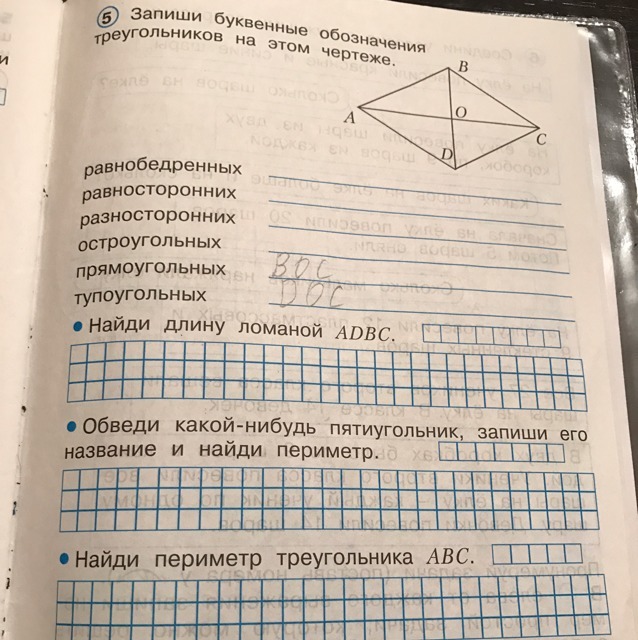 5 Запиши буквенные обозначения
треугольников на этом чертеже.
B
A
O
C
D
равнобедренных
равносторонних
разносторонних
остроугольных
прямоугольных BOC
тупоугольных DOC
• Найди длину ломаной ADBC.
• Обведи какой-нибудь пятиугольник, запиши его
название и найди периметр.
• Найди периметр треугольника ABC.